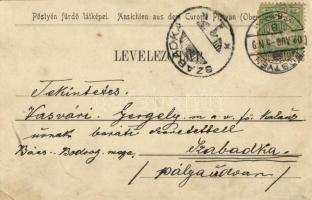 Pöstyén fürdő látképei. Ansichten aus dem Curorte Pistyan (Ober
LEVELEZŐ
SZABADKA
Tekintetes.
Vasvári Gergely m. a. v. fő Kalauz
urnak baráti
Bács-Bodrog megye. Szabadka.
/ pályaudvar /